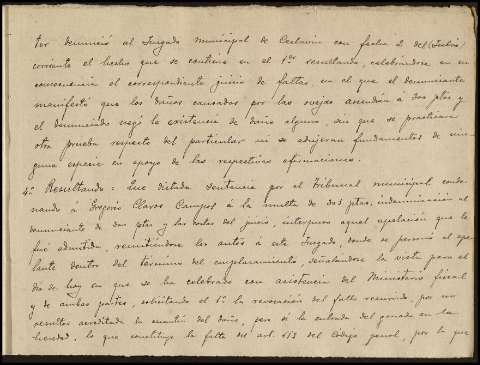 tor denunció al Juzgado municipal de Ceclavin con fecha 2 del (Julio)
corriente el hecho que se contiene en el 1er resultando, celebrándose en su
consecuencia el correspondiente juicio de faltas, en el que el denunciante
manifestó que los daños causados por las ovejas ascendían á dos ptas y
el denunciado negó la existencia de daño alguno, sin que se practicara
otra prueba respecto del particular ni se adujeran fundamentos de nin-
guna especie en apoyo de las respectivas afirmaciones.
4º Resultando: Que dictada sentencia por el Tribunal municipal conde-
nando á Gregorio Claros Campos á la multa de dos ptas, indemnización al
denunciante de dos ptas y las costas del juicio, interpuso aquel apelación que le
fué admitida, remitiéndose los autos á este Juzgado, donde se personó el ape-
lante dentro del término del emplazamiento, señalándose la vista para el
día de hoy en que se ha celebrado con asistencia del Ministerio fiscal
y de ambas partes, solicitando el 1º la revocación del fallo recurrido, por no
resultar acreditada la cuantía del daño, pero sí la entrada del ganado en la
heredad, lo que constituye la falta del art. 613 del Código penal, por la que